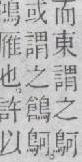 而東謂之鴚
或謂之鶬鴚
鴻雁也許以